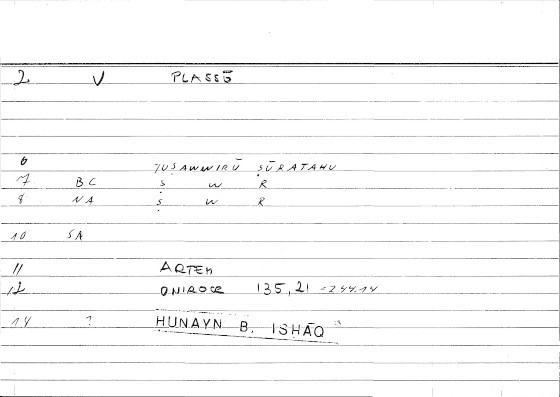 2 V PLASSŌ
6 YUṢAWWIRŪ ṢŪRATAHU
7 BC Ṣ W R
8 NA Ṣ W R
10 SA
11 ARTEM
12 ONIROCR 135,21 = 244.14
14 ? HUNAYN B. ISHĀQ